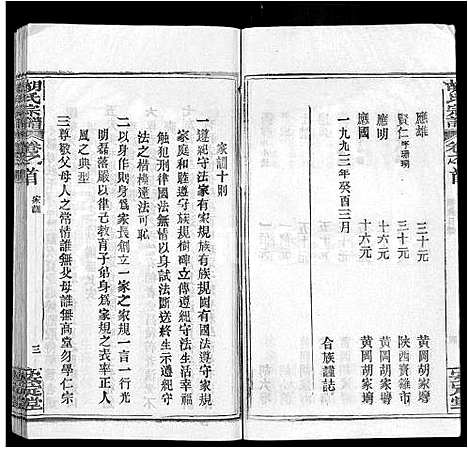 胡氏宗譜
卷之首
應雄 三十元 黃岡胡家塆
賢仁 三十元 陝西寶雞市
應明 十六元 黃岡胡家塆
應國 十六元 黃岡胡家塆
一九九三年癸酉三月 合族謹誌
胡氏宗譜
卷之首
家訓
三
家訓十則
一遵紀守法家有家規族有族規國有國法遵守家規
家庭和睦遵守族規樹碑立傳遵守法紀生活幸福
觸犯刑律國法無情以身試法斷送終生示遵紀守
法之楷模違法可恥
二以身作則身爲家長創立一家之家規一言一行光
明磊落嚴以律己教育子弟身爲家規之表率正人
風之典型
三尊敬父母人之常情誰無父母誰無高堂勿學仁宗